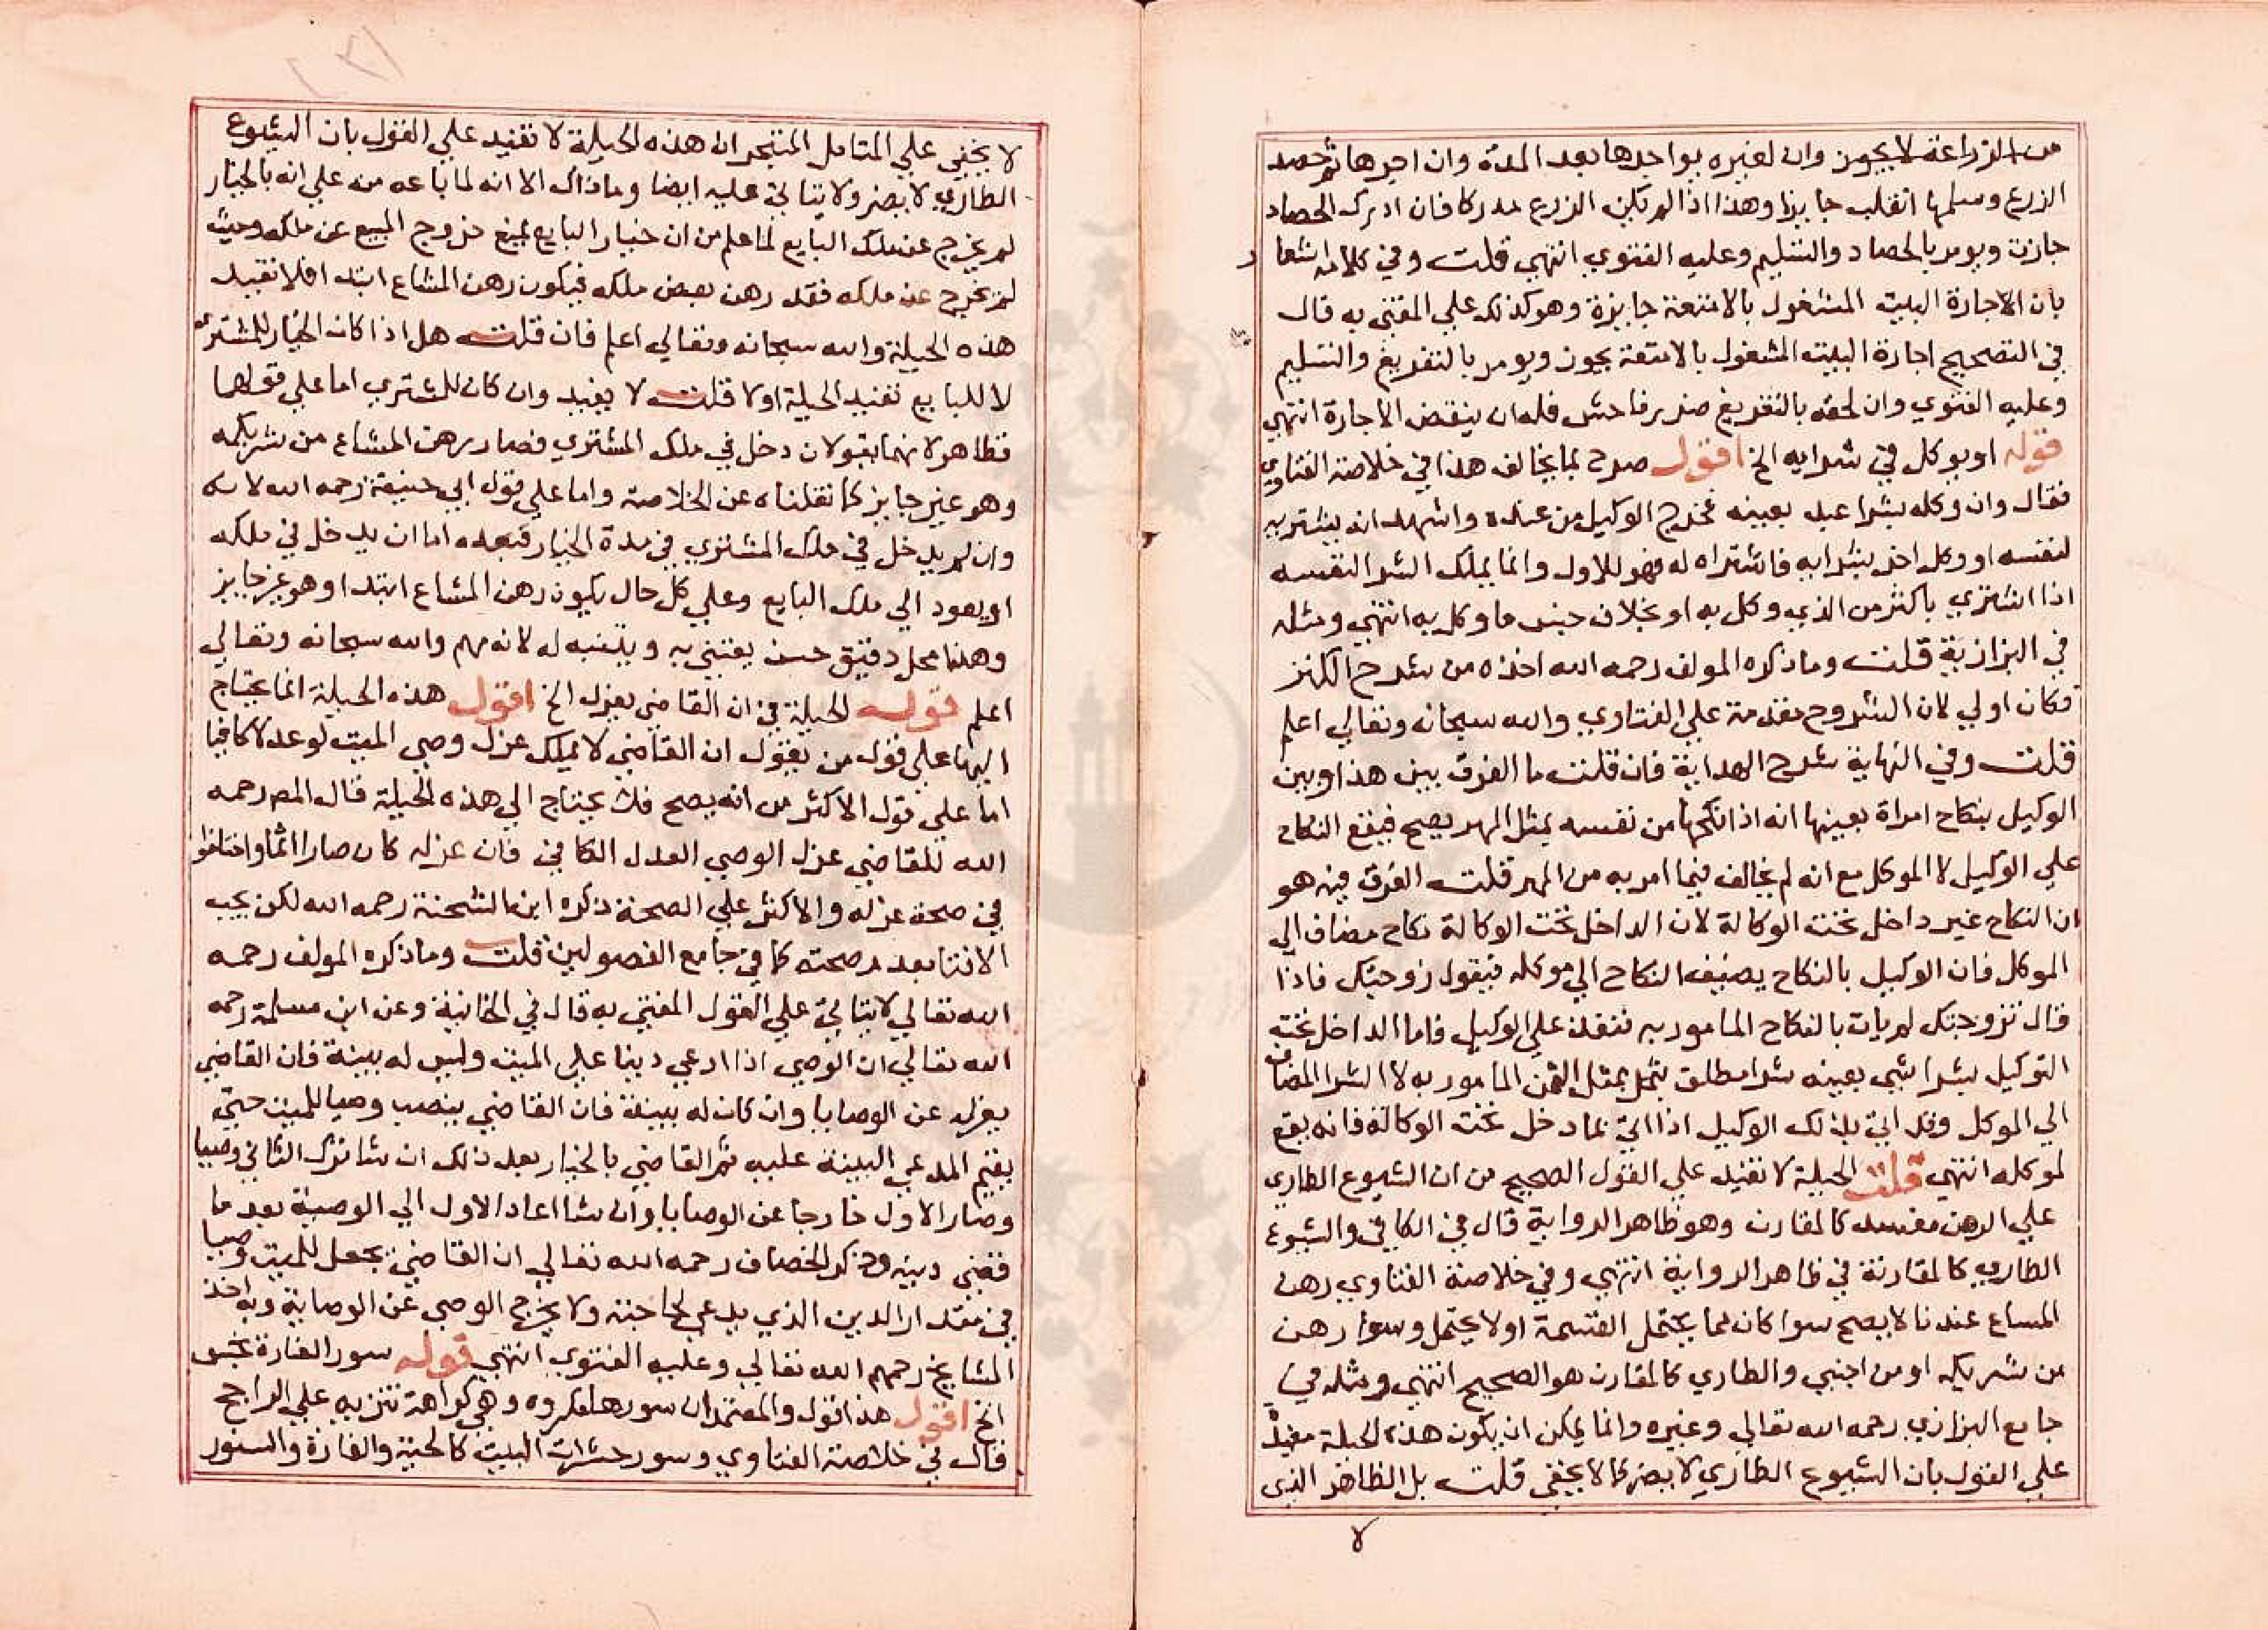 من الزراعة لا يجوز وان لغيره يواجرها بعد المدة وان اجرها ثم حصد
الزرع وسلمها انقلب جايزا وهذا اذا لم يكن الزرع مدركا فان ادرك الحصاد
جازت ويومر بالحصاد والتسليم وعليه الفتوي انتهي قلت وفي كلامه اشعار
بان الاجارة البيت المشغول بالامتعة جايزة وهو كذلك علي المفتي به قال
في التصحيح اجارة البيت المشغول بالامتعة يجوز ويومر بالتفريغ والتسليم
وعليه الفتوي وان لحقه بالتفريغ ضرر فاحش فله ان ينقض الاجارة انتهي
قوله او يوكل في شرايه الخ اقول صرح بما يخالف هذا في خلاصة الفتاوي
فقال وان وكله بشرا عبد بعينه فخرج الوكيل من عنده واشهد انه يشتريه
لنفسه او وكل اخر بشرايه فاشتراه له فهو للاول وانما يملك الشرا لنفسه
اذا اشتري باكثر من الذي وكل به او بخلاف جنس ما وكل به انتهي ومثله
في البزازية قلت وما ذكره المولف رحمه الله اخذه من شرح الكنز
فكان اولي لان الشروح مقدمة علي الفتاوي والله سبحانه وتعالي اعلم
قلت وفي النهاية شرح الهداية فان قلت ما الفرق بين هذا وبين
الوكيل بنكاح امراة بعينها انه اذا نكحها من نفسه بمثل المهر يصح فيقع النكاح
علي الوكيل لا الموكل مع انه لم يخالف فيما امر به من المهر قلت الفرق فيه هو
ان النكاح غير داخل تحت الوكالة لان الداخل تحت الوكالة نكاح مضاف الي
الموكل فان الوكيل بالنكاح يضيف النكاح الي موكله فيقول زوجتك فاذا
قال تزوجتك لم يات بالنكاح المامور به فنفذ علي الوكيل فاما الداخل تحت
التوكيل بشرا شي بعينه شرا مطلق بمثل الثمن المامور به لا الشرا المضاف
الي الموكل وقد اتي بذلك الوكيل اذا اتي بما دخل تحت الوكالة فانه يقع
لموكله انتهي قلت الحيلة لا تفيد علي القول الصحيح من ان الشيوع الطاري
علي الرهن مفسد كالمقارن وهو ظاهر الرواية قال في الكافي والشيوع
الطاري كالمقارنة في ظاهر الرواية انتهي وفي خلاصة الفتاوي رهن
المساع عندنا لا يصح سوا كان مما يحتمل القسمة او لا يحتمل وسوا رهن
من شريكه او من اجنبي والطاري كالمقارن هو الصحيح انتهي ومثله في
جامع البزازي رحمه الله تعالي وغيره وانما يمكن ان يكون هذه الحيلة مفيد
علي القول بان الشيوع الطاري لا يضر كما لا يخفي قلت بل الظاهر الذي
لا
لا يخفي علي المتامل المتبحر ان هذه الحيلة لا تفيد علي القول بان الشيوع
الطاري لا يضر ولا يتاتي عليه ايضا وما ذاك الا انه لما باعه منه علي انه بالخيار
لم يخرج عن ملك البايع لما علم من ان خيار البايع يمنع خروج المبيع عن ملكه وحيث
لم يخرج عن ملكه فقد رهن بعض ملكه فيكون رهن المشاع ابتدا فلا تفيد
هذه الحيلة والله سبحانه وتعالي اعلم فان قلت هل اذا كان الخيار للمشتري
لا للبايع تفيد الحيلة او لا قلت لا يفيد وان كان للمشتري اما علي قولهما
فظاهر لانهما يقولان دخل في ملك المشتري فصار رهن المشاع من شريكه
وهو غير جايز كما نقلناه عن الخلاصة واما علي قول ابي حنيفة رحمه الله لانه
وان لم يدخل في ملك المشتري في مدة الخيار فبعده اما ان يدخل في ملكه
او يعود الي ملك البايع وعلي كل حال يكون رهن المشاع ابتدا وهو غير جايز
وهذا محل دقيق حسن يعتني به ويتنبه له لانه مهم والله سبحانه وتعالي
اعلم قوله الحيلة في ان القاضي يعزله الخ اقول هذه الحيلة انما يحتاج
اليها علي قول من يقول ان القاضي لا يملك عزل وصي الميت لو عدلا كافيا
اما علي قول الاكثر من انه يصح فلا يحتاج الي هذه الحيلة قال المص رحمه
الله للقاضي عزل الوصي العدل الكافي فان عزله كان صارا اثما واختلفوا
في صحة عزله والاكثر علي الصحة ذكره ابن الشحنة رحمه الله لكن يجب
الافتا بعدم صحته كما في جامع الفصولين قلت وما ذكره المولف رحمه
الله تعالي لا يتاتي علي القول المفتي به قال في الخانية وعن ابن مسلمة رحمه
الله تعالي ان الوصي اذا ادعي دينا علي الميت وليس له بينة فان القاضي
يعزله عن الوصايا وان كان له بينة فان القاضي ينصب وصيا للميت حتي
يقيم المدعي البينة عليه ثم القاضي بالخيار بعد ذلك ان شا ترك الثاني وصيا
وصار الاول خارجا عن الوصايا وان شا اعاد الاول الي الوصية بعد ما
قضي دينه وذكر الخصاف رحمه الله تعالي ان القاضي يجعل للميت وصيا
في مقدار الدين الذي يدعي لحاجته ولا يخرج الوصي عن الوصاية وبه اخذ
المشايخ رحمهم الله تعالي وعليه الفتوي انتهي قوله سور الفارة نجس
الخ اقول هذا قول والمعتمد ان سورها مكروه وهي كراهة تنزيه علي الراجح
قال في خلاصة الفتاوي وسور حشرات البيت كالحية والفارة والسنور